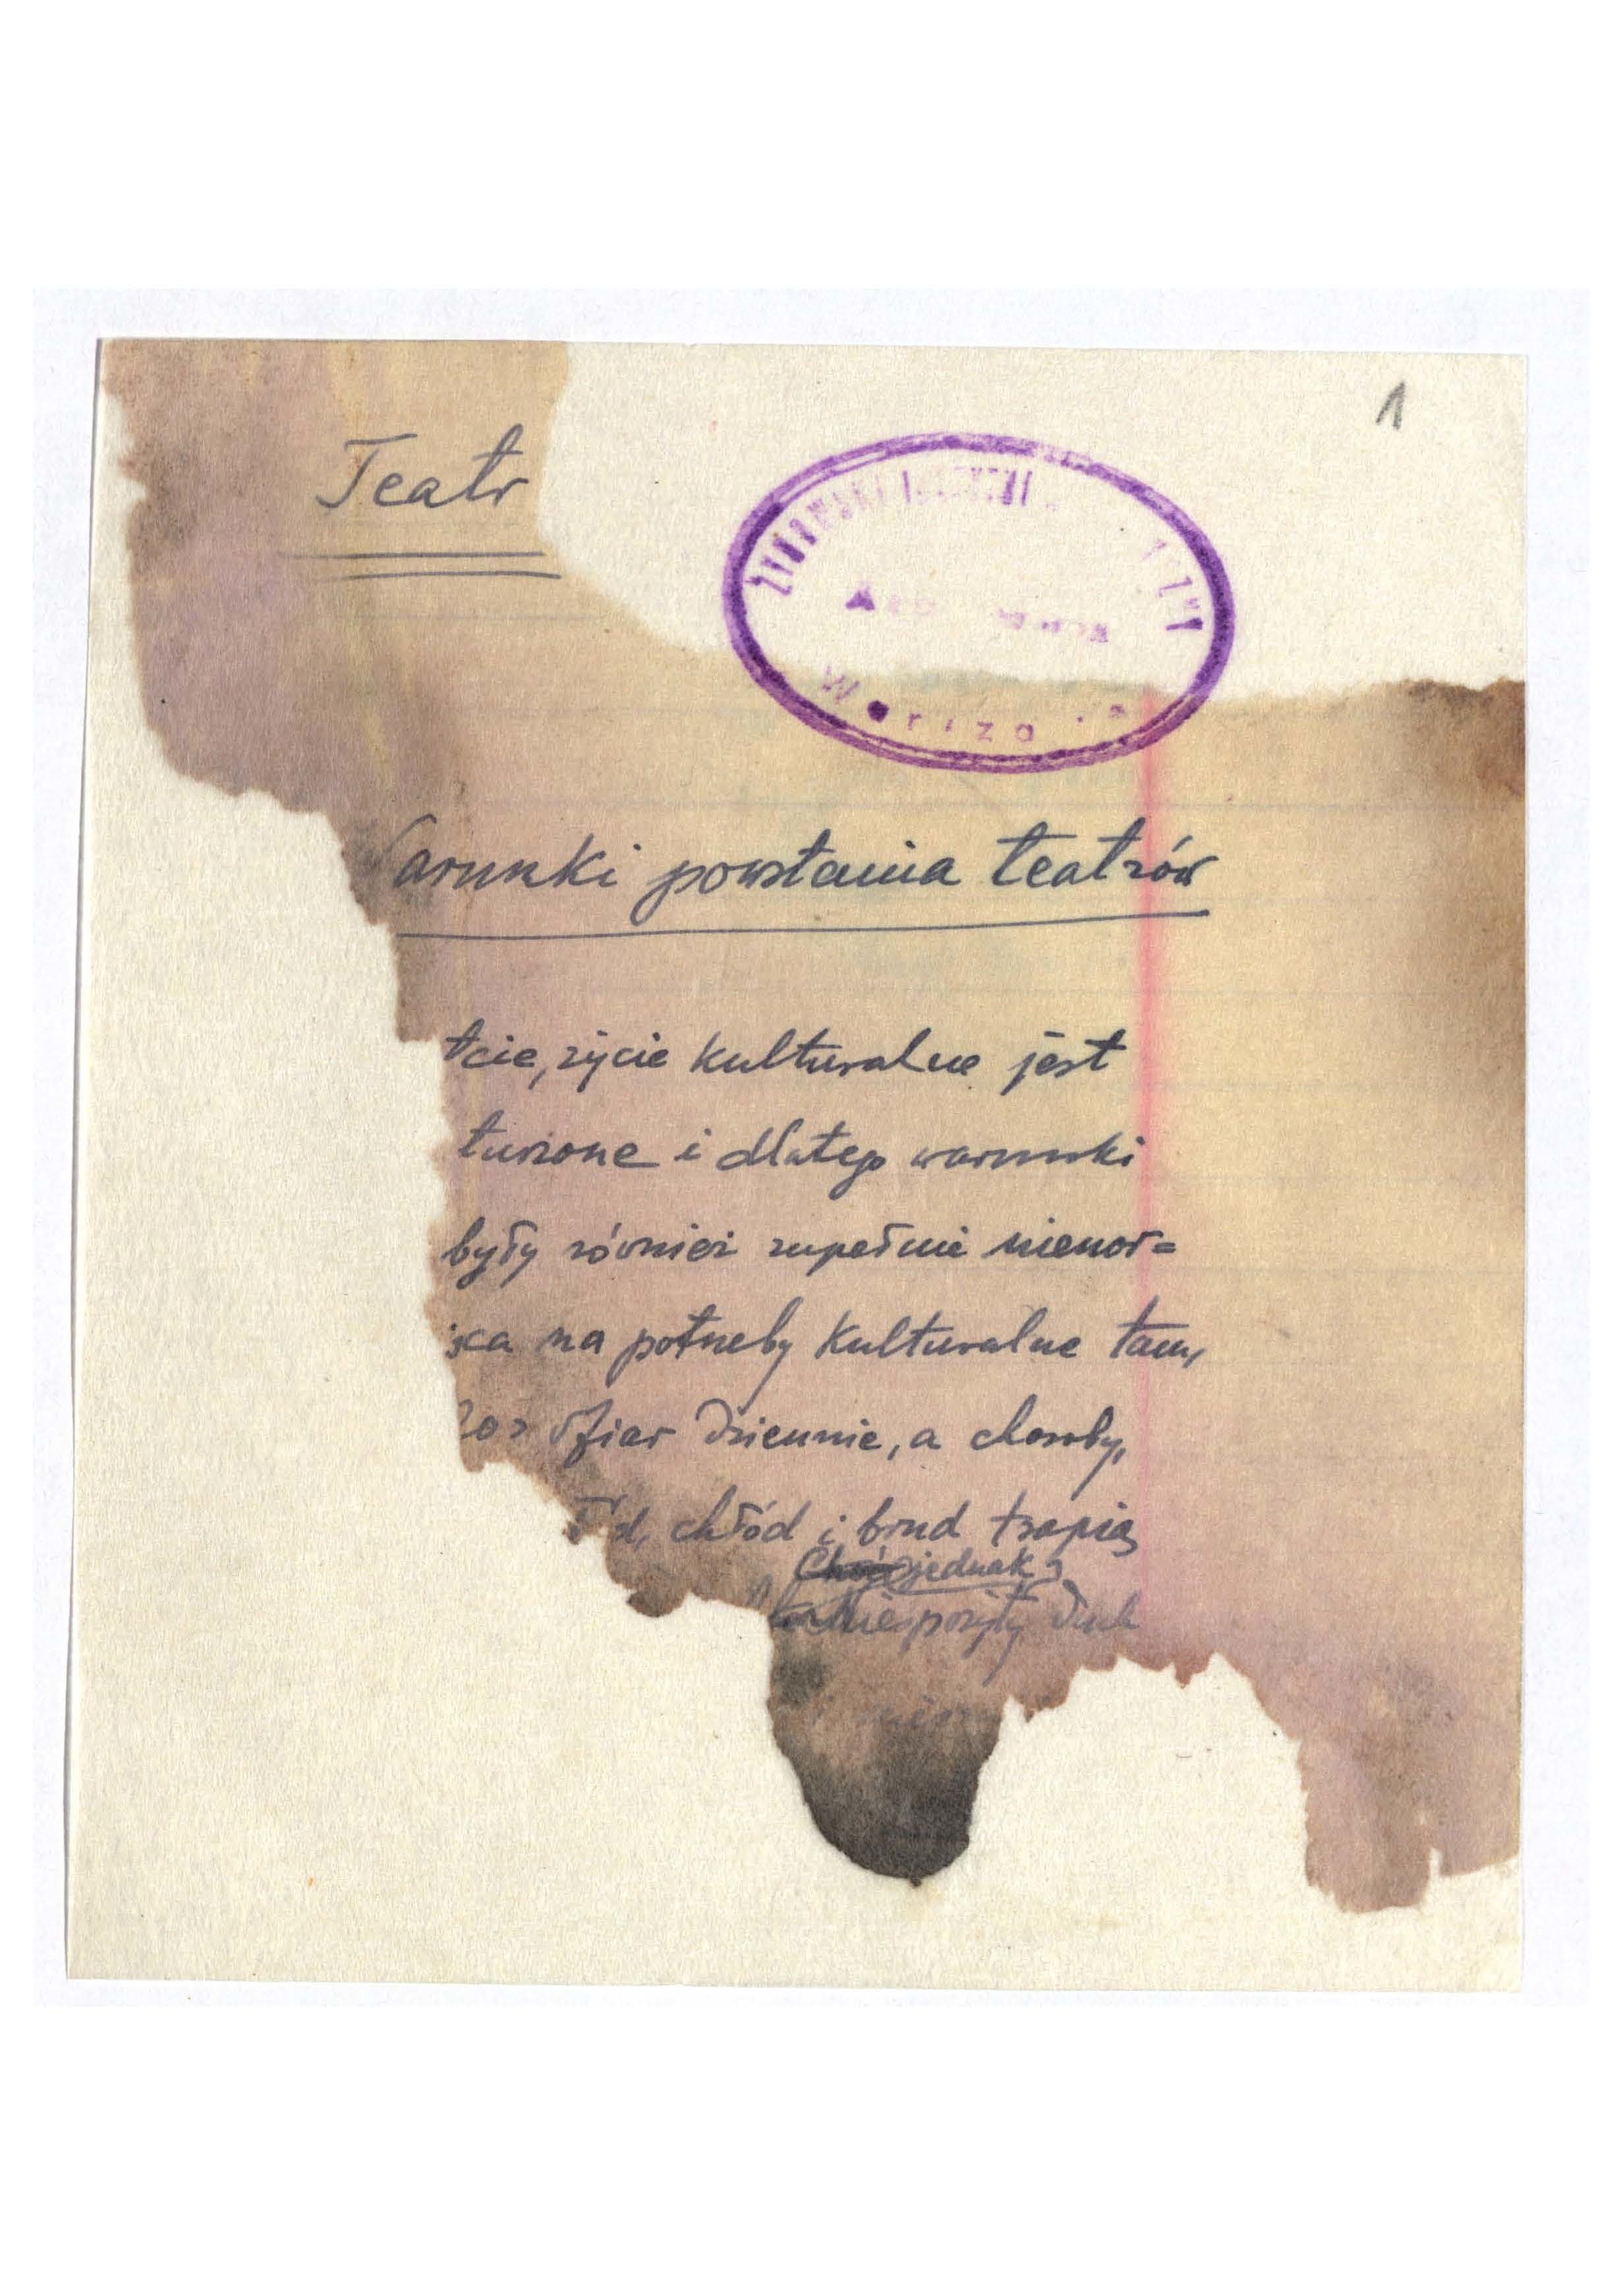 1
Teatr
ŻYDOWSKI
arunki powstania teatrów
tcie, życie kulturalne jest
i dlatego warunki
były również zupełnie nienor=
na potrzeby kulturalne tam,
ofiar dziennie, a choroby,
chłód i brud trapią
jednak
niespożyty duch